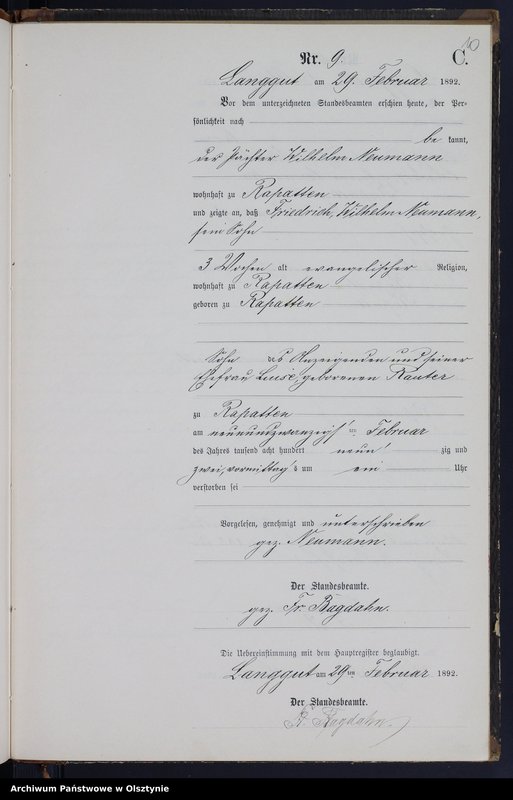 10
Nr. 9. C.
Langgut am 29. Februar 1892.
Vor dem unterzeichneten Standesbeamten erschien heute, der Per-
sönlichkeit nach
be kannt,
der Pächter Wilhelm Neumann
wohnhaft zu Rapatten
und zeigte an, daß Friedrich, Wilhelm Neumann,
sein Sohn
3 Wochen alt evangelischer Religion,
wohnhaft zu Rapatten
geboren zu Rapatten
Sohn des Anzeigenden und seiner
Ehefrau Luise, geborenen Kauter
zu Rapatten
am neunundzwanzigsten Februar
des Jahres tausend acht hundert neunzig und
zwei, vormittags um ein Uhr
verstorben sei
Vorgelesen, genehmigt und unterschrieben
gez. Neumann.
Der Standesbeamte.
gez. Fr. Bagdahn.
Die Uebereinstimmung mit dem Hauptregister beglaubigt.
Langgut am 29ten Februar 1892.
Der Standesbeamte.
Fr. Bagdahn.
Archiwum Państwowe w Olsztynie